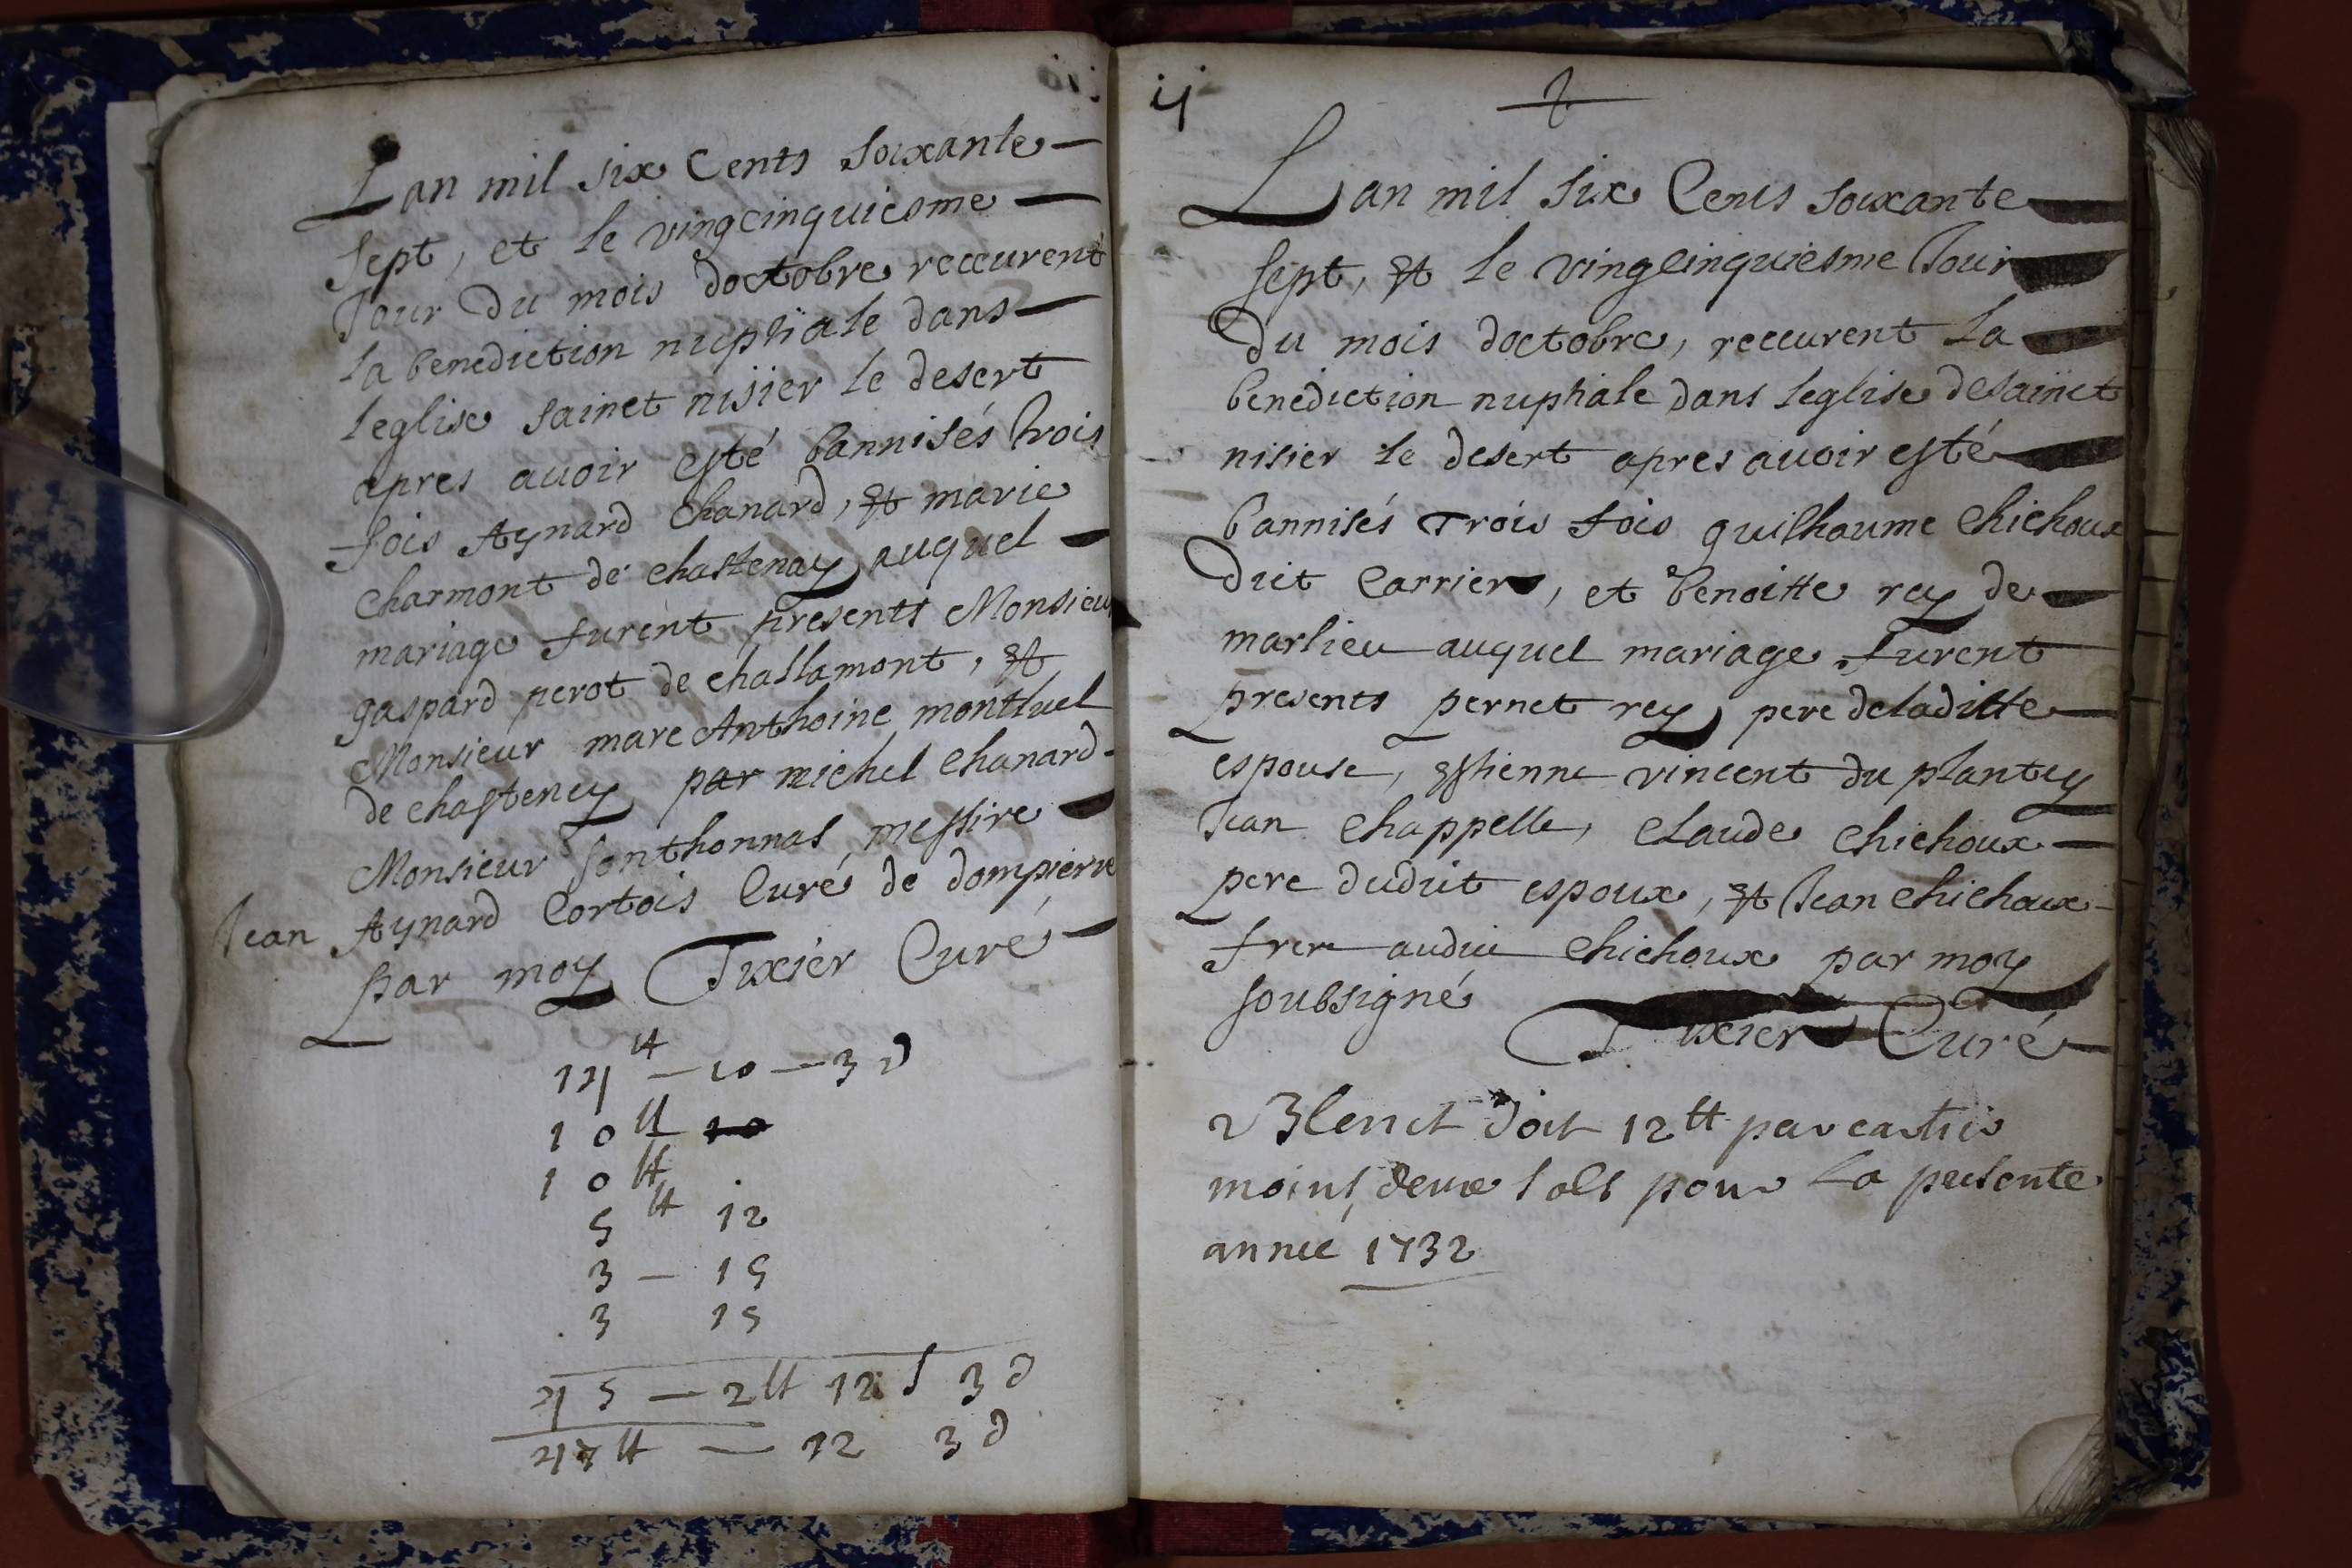 Lan mil six Cents soixante
sept, et le vingcinquiesme
Jour Du mois doctobre receurent
la benediction nuptiale dans
leglise sainct nisier le desert
apres auoir esté bannisés trois
fois Aynard Chanard, et marie
Charmont de chastenay auquel
mariage furent presents Monsieur
gaspard perot de chastamont, et
Monsieur marc Anthoine montluel
de chasteney par michel Chanard
Monsieur sonthonnas, messire
Jean Aynard Cortois Curé de dompierre
par moy Tixier Curé
14 ₶ — 10 — 3 d
10 ₶ 10
10 ₶
5 ₶ 12
3 — 15
3 15
45 — 2 ₶ 12 s 3 d
47 ₶ — 12 3 d
ij
2
Lan mil six Cents soixante
sept, et le vingcinquiesme Jour
Du mois doctobre, receurent la
benediction nuptiale dans leglise de sainct
nisier le desert apres auoir esté
bannisés trois fois guilhaume Chichoux
dict Carrier, et benoitte rey de
marlieu auquel mariage furent
presents pernet rey pere de laditte
espouse, estienne vincent du plantey
Jean Chappelle, Claude Chichoux
pere dudict espoux, et Jean Chichoux
frere audict Chichoux par moy
soubsigné
Tixier Curé
doit 12 ₶ par
moins deux sols pour la presente
année 1732